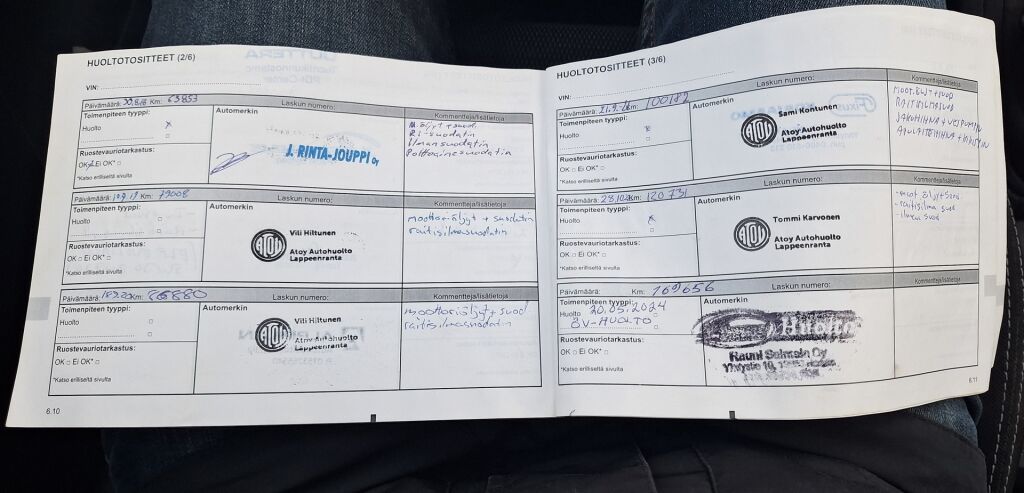 HUOLTOTOSITTEET (2/6)
VIN:
Päivämäärä: 30.8.18 Km: 63853 Laskun numero:
Toimenpiteen tyyppi:
Huolto x
Ruostevauriotarkastus:
OK Ei OK*
*Katso erilliseltä sivulta
Automerkin
J. RINTA-JOUPPI OY
Kommentteja/lisätietoja
M.öljyt + suod.
Ri-suodatin
ilmansuodatin
Polttoainesuodatin
Päivämäärä: Km: 79008 Laskun numero:
Toimenpiteen tyyppi:
Huolto
Ruostevauriotarkastus:
OK Ei OK*
*Katso erilliseltä sivulta
Automerkin
ATOY
Vili Hiltunen
Atoy Autohuolto
Lappeenranta
Kommentteja/lisätietoja
moottoriöljyt + suodatin
raitisilmasuodatin
Päivämäärä: Km: 86880 Laskun numero:
Toimenpiteen tyyppi:
Huolto
Ruostevauriotarkastus:
OK Ei OK*
*Katso erilliseltä sivulta
Automerkin
ATOY
Vili Hiltunen
Atoy Autohuolto
Lappeenranta
Kommentteja/lisätietoja
moottoriöljyt + suod
raitisilmasuodatin
6.10
HUOLTOTOSITTEET (3/6)
VIN:
Päivämäärä: Km: 100182 Laskun numero:
Toimenpiteen tyyppi:
Huolto x
Ruostevauriotarkastus:
OK Ei OK*
*Katso erilliseltä sivulta
Automerkin
ATOY
Sami Kontunen
Atoy Autohuolto
Lappeenranta
Kommentteja/lisätietoja
moot.öljyt + suod
RAITISILMASUOD
JAKOHIHNA + VESIPUMPPU
APULAITEHIHNA +
Päivämäärä: Km: 120731 Laskun numero:
Toimenpiteen tyyppi:
Huolto x
Ruostevauriotarkastus:
OK Ei OK*
*Katso erilliseltä sivulta
Automerkin
ATOY
Tommi Karvonen
Atoy Autohuolto
Lappeenranta
Kommentteja/lisätietoja
- moot. öljyt + suod.
- raitisilma suod
- ilman suod
Päivämäärä: Km: 169656 Laskun numero:
Toimenpiteen tyyppi:
Huolto 20.05.2024
ÖV-HUOLTO
Ruostevauriotarkastus:
OK Ei OK*
*Katso erilliseltä sivulta
Automerkin
Huolto
Rauni Salmein Oy
Kommentteja/lisätietoja
6.11